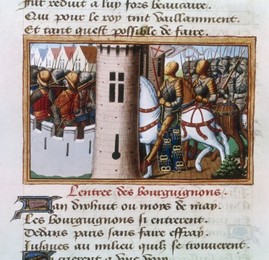 fut reduit a luy fors beaucaire.
Qui pour le roy tint vaillamment.
Et tant quest possible de faire.
Lentree des bourguignons.
an dixhuit ou moys de may.
Les bourguignons si entrerent.
Dedans paris sans faire effray.
Jusques au milieu quilz se trouverent.
crierent a